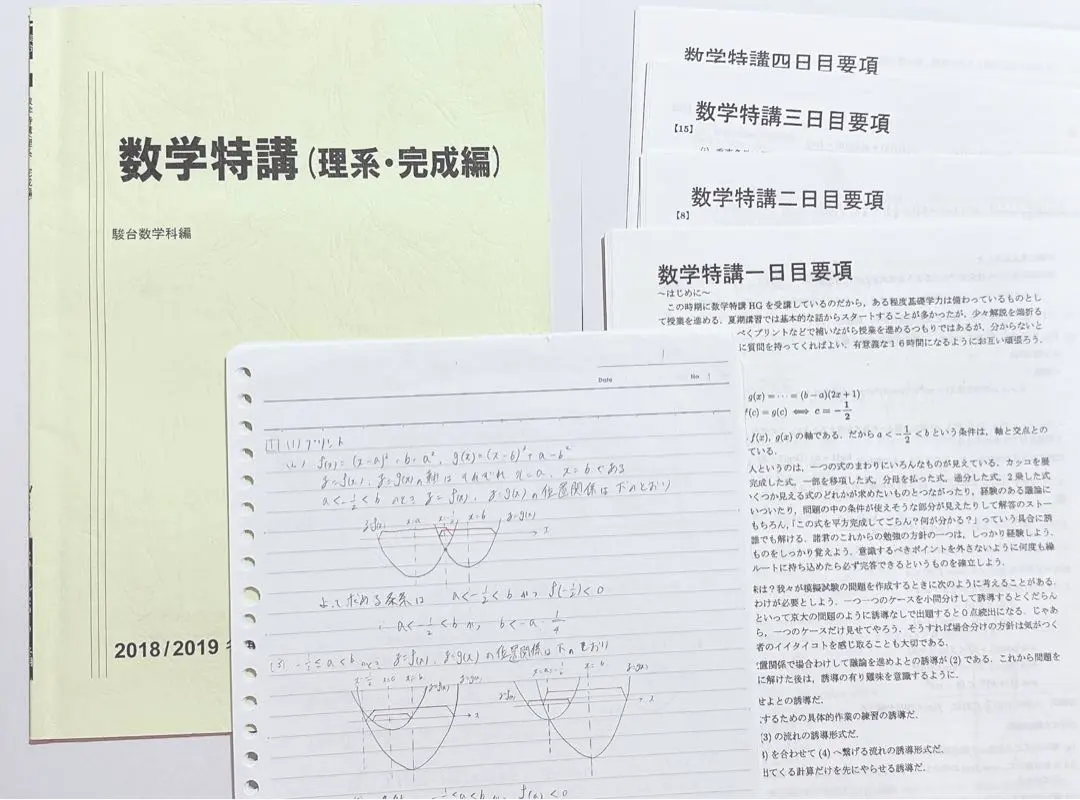 数学特講(理系・完成編)
駿台数学科編
2018/2019
数学特講四日目要項
数学特講三日目要項
【15】
数学特講二日目要項
【8】
数学特講一日目要項
～はじめに～
この時期に数学特講HGを受講しているのだから，ある程度基礎学力は備わっているものとし
て授業を進める．夏期講習では基本的な話からスタートすることが多かったが，少々解説を端折る
べくプリントなどで補いながら授業を進めるつもりではあるが，分からないと
に質問を持ってくればよい．有意義な１６時間になるようにお互い頑張ろう．
g(x) = ⋯ = (b−a)(2x+1)
f(c) = g(c) ⟺ c = −1/2
f(x), g(x) の軸である．だから a < −1/2 < b という条件は，軸と交点との
ている．
人というのは，一つの式のまわりにいろんなものが見えている．カッコを展
完成した式，一部を移項した式，分母を払った式，通分した式，２乗した式
くつか見える式のどれかが求めたいものとつながったり，経験のある議論に
いついたり，問題の中の条件が使えそうな部分が見えたりして解答のストー
もちろん，「この式を平方完成してごらん？何が分かる？」っていう具合に誘
誰でも解ける．諸君のこれからの勉強の方針の一つは，しっかり経験しよう．
ものをしっかり覚えよう．意識するべきポイントを外さないように何度も繰
ルートに持ち込めたら必ず完答できるというものを確立しよう．
味は？我々が模擬試験の問題を作成するときに次のように考えることがある．
わけが必要としよう．一つ一つのケースを小問分けして誘導するとくだらん
といって京大の問題のように誘導なしで出題すると０点続出になる．じゃあ
ら，一つのケースだけ見せてやろう．そうすれば場合分けの方針は気がつく
者のイタイコトを感じ取ることも大切である．
置関係で場合わけして議論を進めよとの誘導が (2) である．これから問題を
に解けた後は，誘導の有り難味を意識するように．
せよとの誘導だ．
するための具体的作業の練習の誘導だ．
(3) の流れの誘導形式だ．
) を合わせて (4) へ繋げる流れの誘導形式だ．
出てくる計算だけを先にやらせる誘導だ．
Date
No
1 (1) プリント
(2) f(x) = (x−a)² + b − a², g(x) = (x−b)² + a − b²
y=f(x), y=g(x) の軸はそれぞれ x=a, x=b である
a < −1/2 < b のとき y=f(x), y=g(x) の位置関係は下のとおり
y=f(x) x=a x=−1/2 x=b y=g(x)
x
よって求める条件は a < −1/2 < b かつ f(−1/2) < 0
∴ a < −1/2 < b かつ b < −a − 1/4
(3) −1/2 ≤ a < b のとき y=f(x), y=g(x) の位置関係は下のとおり
x=−1/2 x=a x=b y=f(x) y=g(x)
x
y=f(x) x=a=−1/2 x=b y=g(x)
x
−1/2 ≤ a < b かつ f(a) < 0